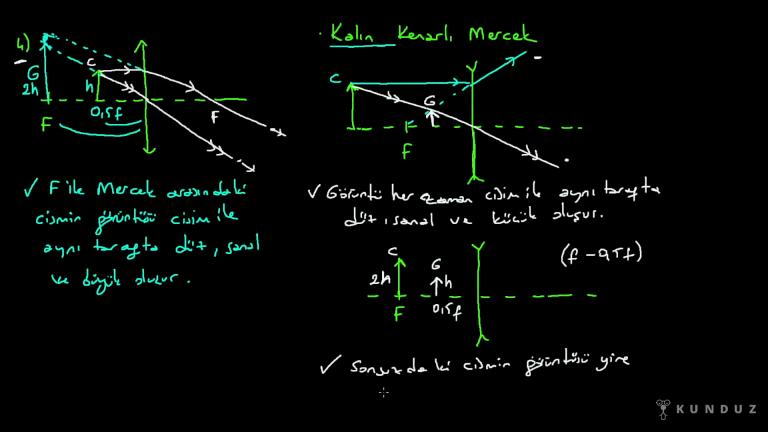 4)
C
G
2h
h
F
0,5f
F
✓ F ile Mercek arasındaki
cismin görüntüsü cisim ile
aynı tarafta düz, sanal
ve büyük oluşur.
· Kalın Kenarlı Mercek
C
G
F
✓ Görüntü her zaman cisim ile aynı tarafta
düz, sanal ve küçük oluşur.
C
2h
G
h
(f - 0,5f)
F
0,5f
✓ Sonsuzdaki cismin görüntüsü yine
KUNDUZ